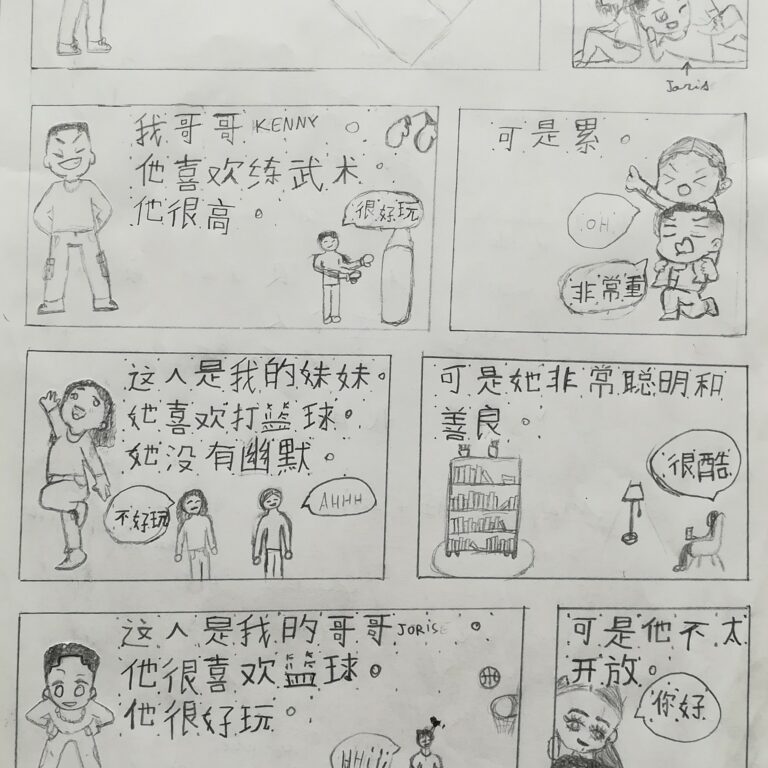 Joris
我哥哥 KENNY 。
他喜欢练武术。
他很高。
很好玩
可是累。
OH
非常重
这人是我的妹妹。
她喜欢打篮球。
她没有幽默。
不好玩
AHHH
可是她非常聪明和
善良。
很酷
这人是我的哥哥 JORISE 。
他很喜欢篮球。
他很好玩。
可是他不太
开放。
你好